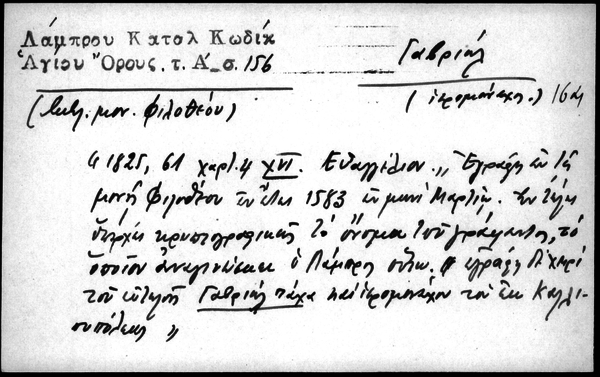 Λάμπρου Κατολ Κωδίκ
Ἁγίου Ὄρους. τ. Α΄ σ. 156
Γαβριήλ
(βιβλ. μον. Φιλοθέου)
(ἱερομόναχος.) 16 αι
" 1825, 61 χαρτ. 4 XVI. Εὐαγγέλιον. „ Ἐγράφη ἐν τῇ
μονῇ Φιλοθέου ἐν ἔτει 1583 ἐν μηνὶ Μαρτίῳ. ἐν τέλει
ὑπάρχει κρυπτογραφικῶς τὸ ὄνομα τοῦ γράψαντος, τὸ
ὁποῖον ἀναγινώσκει ὁ Λάμπρος οὕτω. ἐγράφη διὰ χειρὶ
τοῦ εὐτελοῦς Γαβριήλ τάχα καὶ ἱερομονάχου τοῦ ἐκ Καλλι-
ουπόλεως „